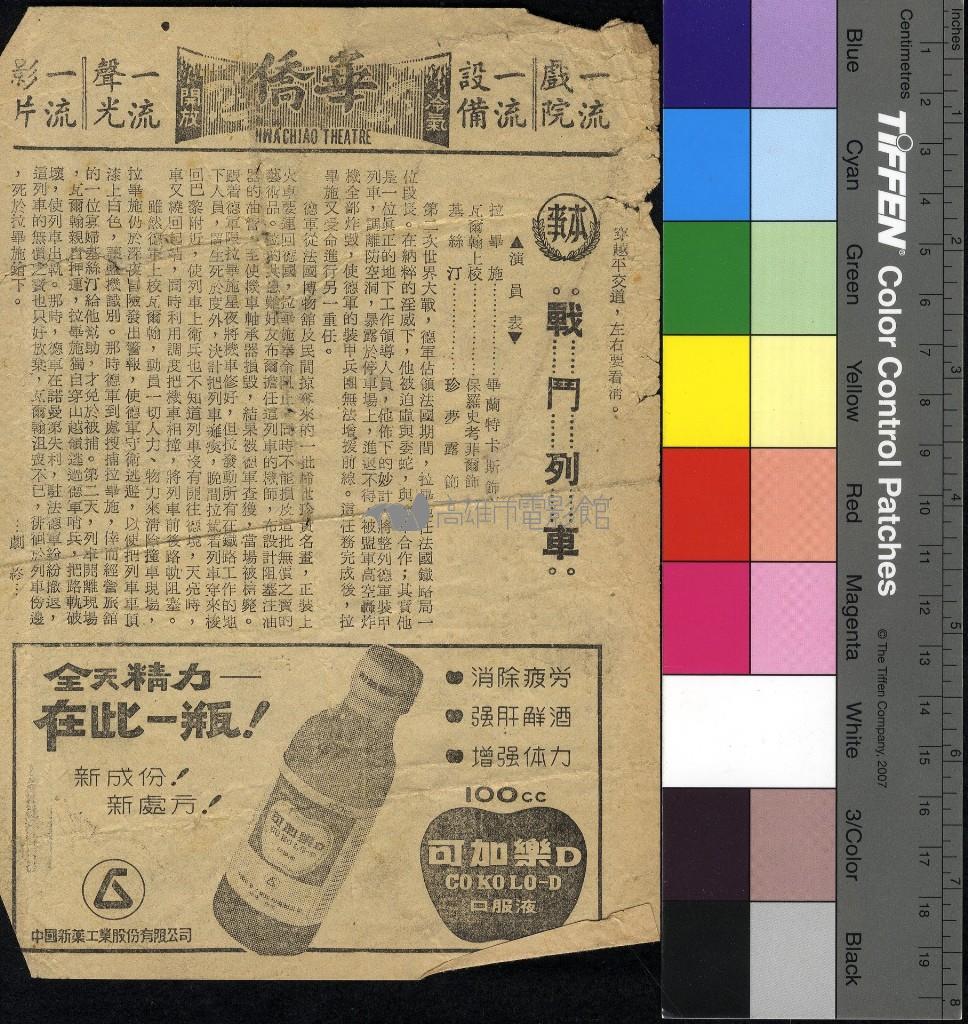 一流戲院
一流設備
冷氣
華僑
HWA CHIAO THEATRE
開放
一流聲光
一流影片
穿越平交道,左右要看清。
本事
戰……鬥……列……車
▲演員表▼
拉畢施………畢蘭特卡斯飾
瓦爾翰上校………保羅史考菲爾飾
基絲汀………珍夢露飾
第二次世界大戰,德軍佔領法國期間,拉畢施任法國鐵路局一
位段長。在納粹的淫威下,他被迫虛與委蛇,與德軍合作;其實他
是一位眞正的地下工作領導人員,他佈下的妙計,將整列德軍裝甲
列車,調離防空洞,暴露於停車場上,進退不得,被盟軍高空轟炸
機全部炸毀,使德軍的裝甲兵團無法增援前線。這任務完成後,拉
畢施又受命進行另一重任。
德軍從法國博物舘及民間掠奪來的一批稀世珍貴名畫,正裝上
火車要運回德國,拉畢施奉命阻止,同時不能損及這批無價之寶的
藝術品。他的共患難好友布爾擔任這列車的機師,布設計阻塞注油
器的油管,至使機車軸承器損毀,結果被德軍查獲,當場被槍斃。
跟着德軍限拉畢施星夜將機車修好,但拉發動所有在鐵路工作的地
下人員,置生死於度外,決計把列車癱瘓,晚間拉駕着列車穿來梭
回巴黎附近,使列車上衛兵也不知道列車沒有開往德境,天亮時,
車又繞回起站,同時利用調度把機車相撞,將列車前後路軌阻塞。
雖然德軍上校瓦爾翰,動員一切人力、物力來清除撞車現場,
拉畢施仍於深夜冒險發出警報,使德軍守衛逃避,以便把列車車頂
漆上白色,讓盟機識別。那時德軍到處搜捕拉畢施,倖而經營旅舘
的一位寡婦基絲汀給他幫助,才免於被捕。第二天,列車開離現場
,瓦爾翰親自押運,拉畢施獨自穿山越嶺逃過德軍哨兵,把路軌破
壞,使列車出軌。那時,德軍在諾曼第失利,駐法德軍紛紛撤退,
這列車的無價之寶也只好放棄,瓦爾翰沮喪不已,徘徊於列車傍邊
,死於拉畢施鎗下。
…劇終…
高雄市電影館
全天精力—
在此一瓶!
新成份!
新處方!
中國新藥工業股份有限公司
可加樂D
消除疲劳
强肝鮮酒
增强体力
100cc
可加樂D
COKOLO-D
口服液
Inches
Centimetres
1 2 3 4 5 6 7 8 9 10 11 12 13 14 15 16 17 18 19
1 2 3 4 5 6 7 8
TIFFEN® Color Control Patches
© The Tiffen Company, 2007
Blue
Cyan
Green
Yellow
Red
Magenta
White
3/Color
Black